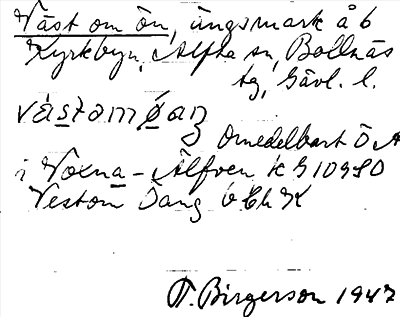 Väst om ön, ängsmark å b
Kyrkbyn, Alfta sn, Bollnäs
tg, Gävl. l.
västamǿaŋ
Omedelbart Ö
i Voxna-Älfven k
Vestom Öang b
T. Birgerson 1947